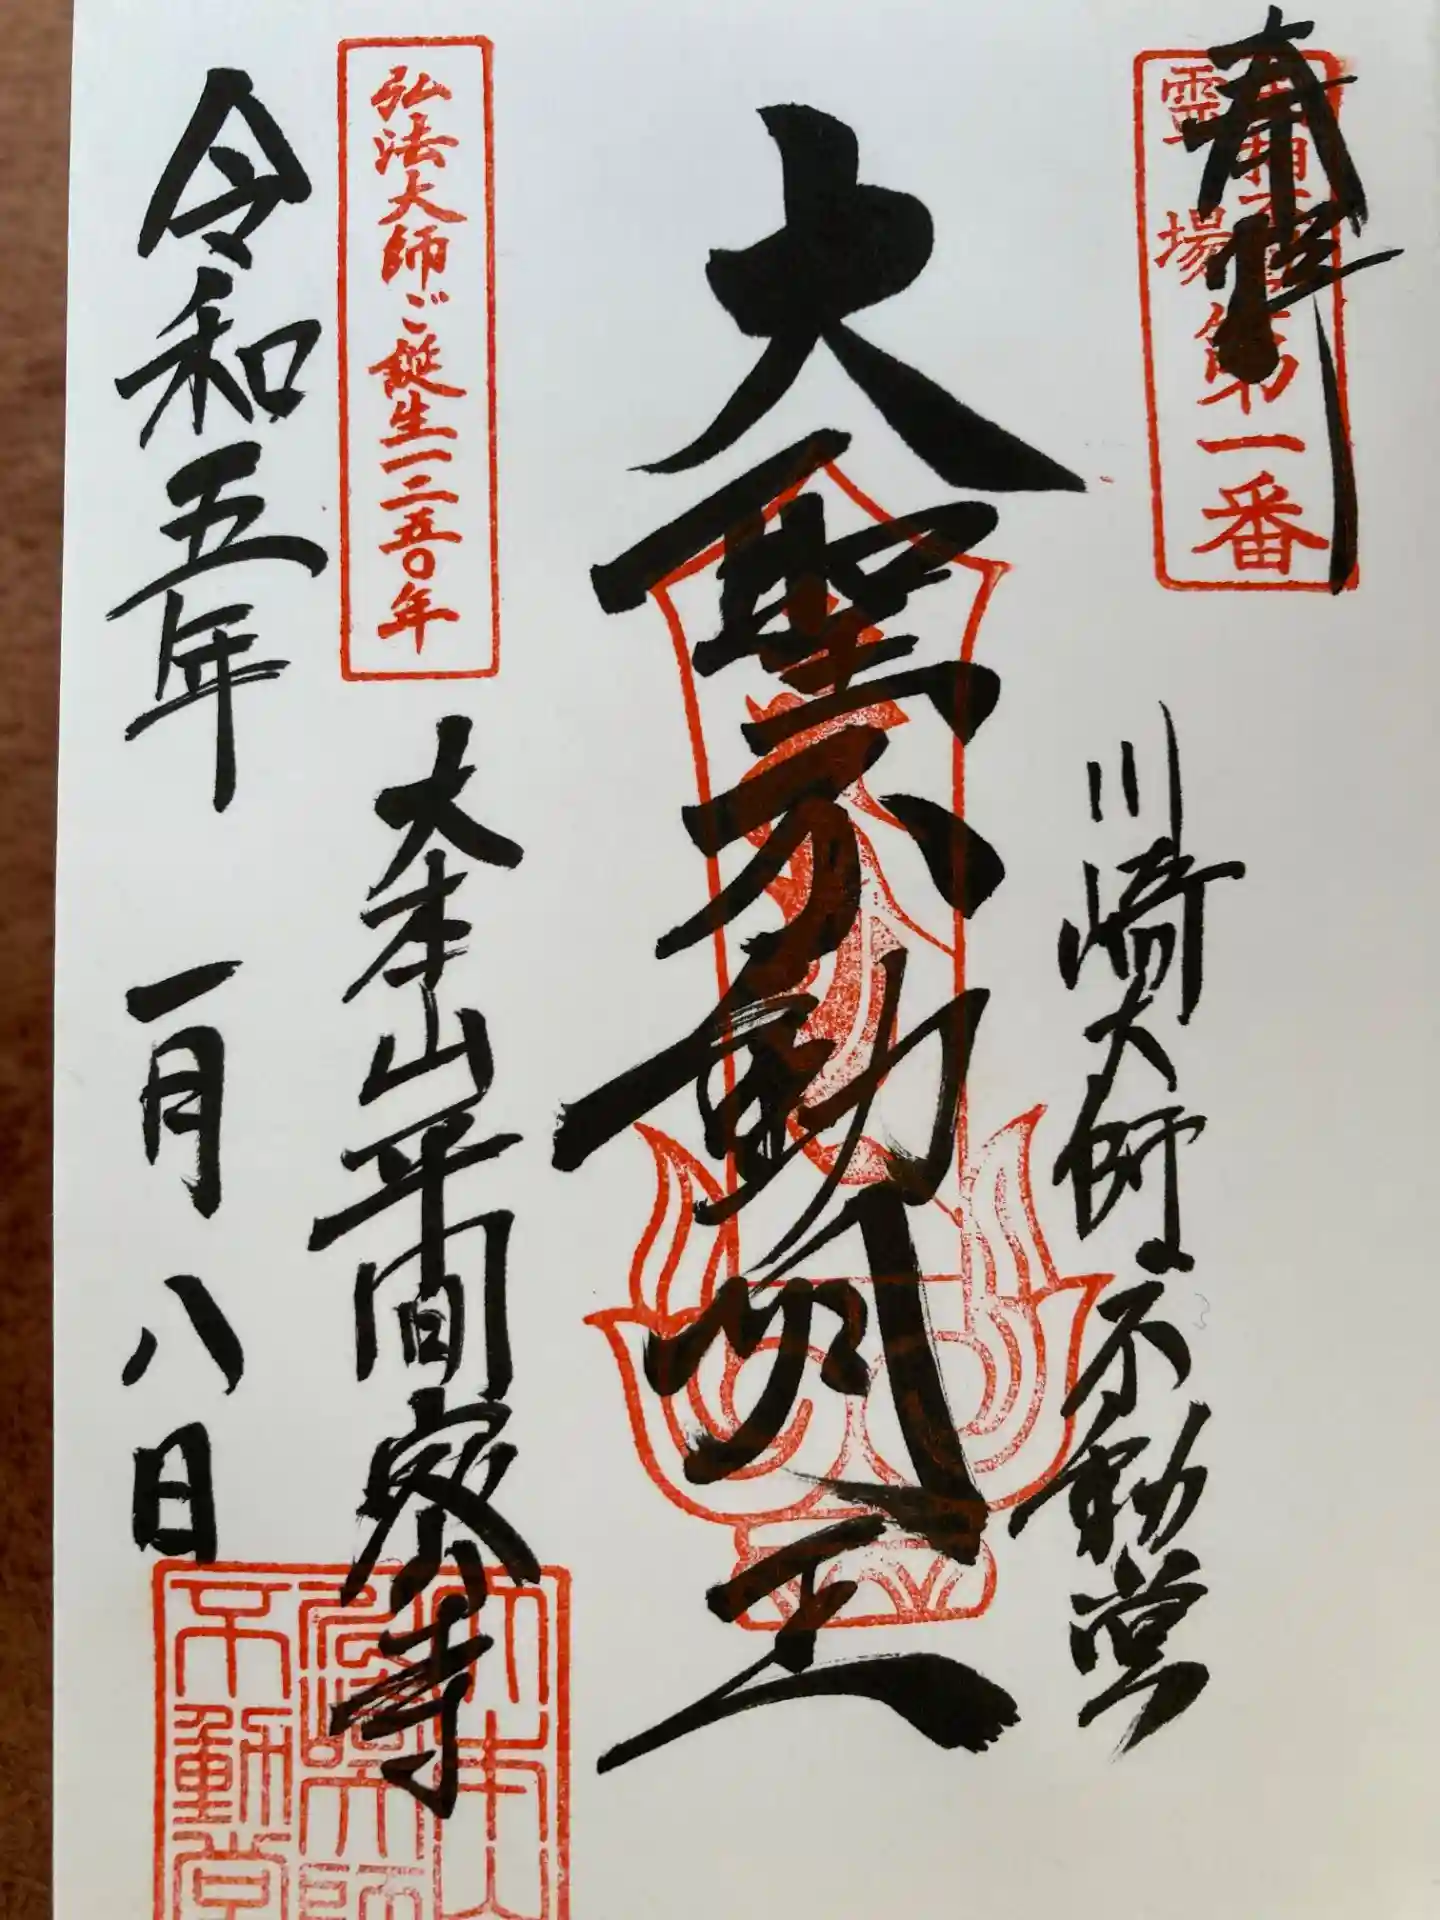 奉拝
霊場第一番
川崎大師不動堂
大聖不動明王
弘法大師ご誕生一二五〇年
大本山平間寺
令和五年
一月八日
大本山
弘法大師
不動堂